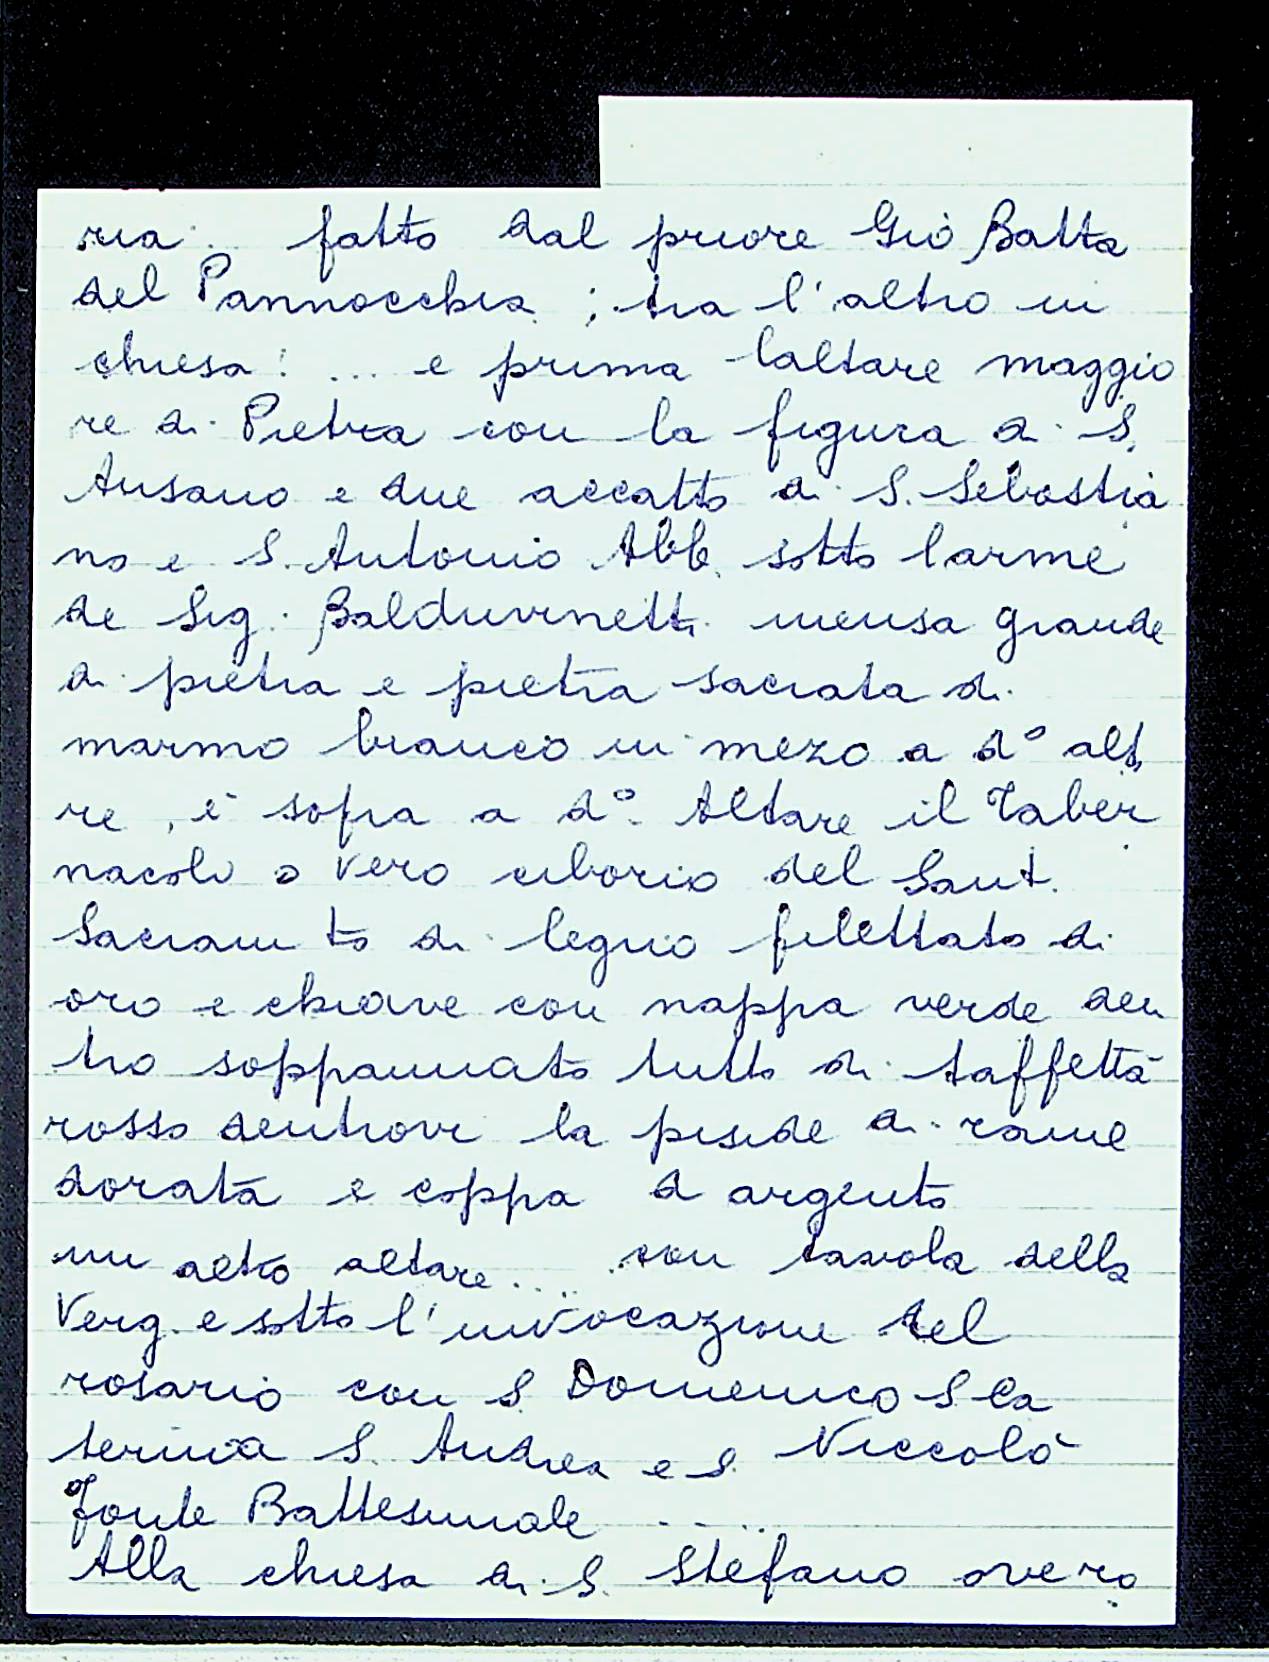 ria... fatto dal priore Giò Batta
del Pannocchia ; tra l'altro in
chiesa: ... e prima laltare maggio
re di Pietra con la figura di S.
Ansano e due accatto di S. Sebastia
no e S. Antonio Abb. sotto larme
de Sig. Balduvinetti mensa grande
di pietra e pietra sacrata di
marmo bianco in mezo a dº alta
re, e sopra a dº. Altare il Taber
nacolo o vero ciborio del Sant.
Sacram to di legnio filettato di
oro e chiave con nappa verde den
tro soppannato tutto di taffettà
rosso dentrovi la piside di rame
dorata e coppa d argento
un altro altare..... con tavola della
Verg. e sotto l'invocazione del
rosario con S. Domenico S Ca
terina S. Andrea e S. Niccolò
Fonte Battesimale .....
Alla chiesa di S. Stefano overo